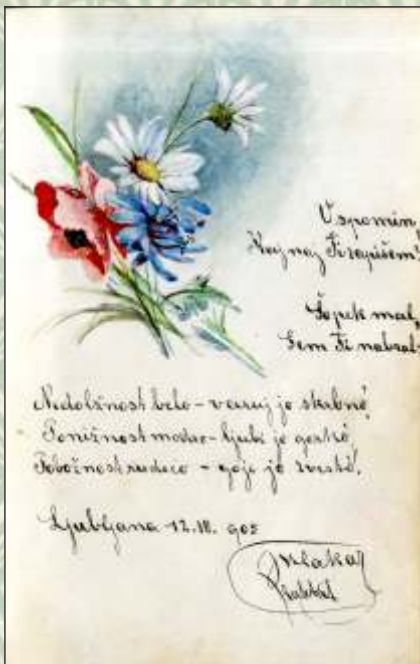 V spomin,
Kaj naj Ti zapišem?
Šopek mal
Sem Ti nabral
Nedolžnost belo – varuj jo skrbno,
Ponižnost modro – ljubi jo gorko,
Pobožnost rudečo – goji jo zvesto.
Ljubljana 12.